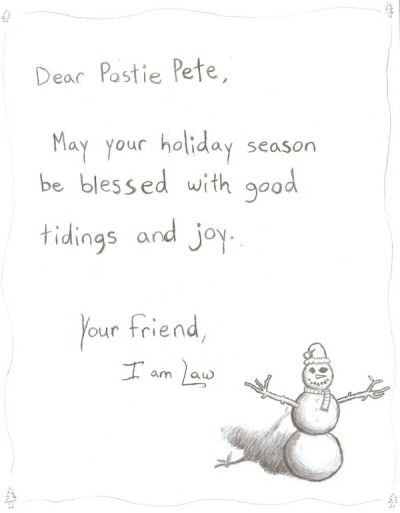 Dear Postie Pete,
May your holiday season
be blessed with good
tidings and joy.
Your friend,
I am Law